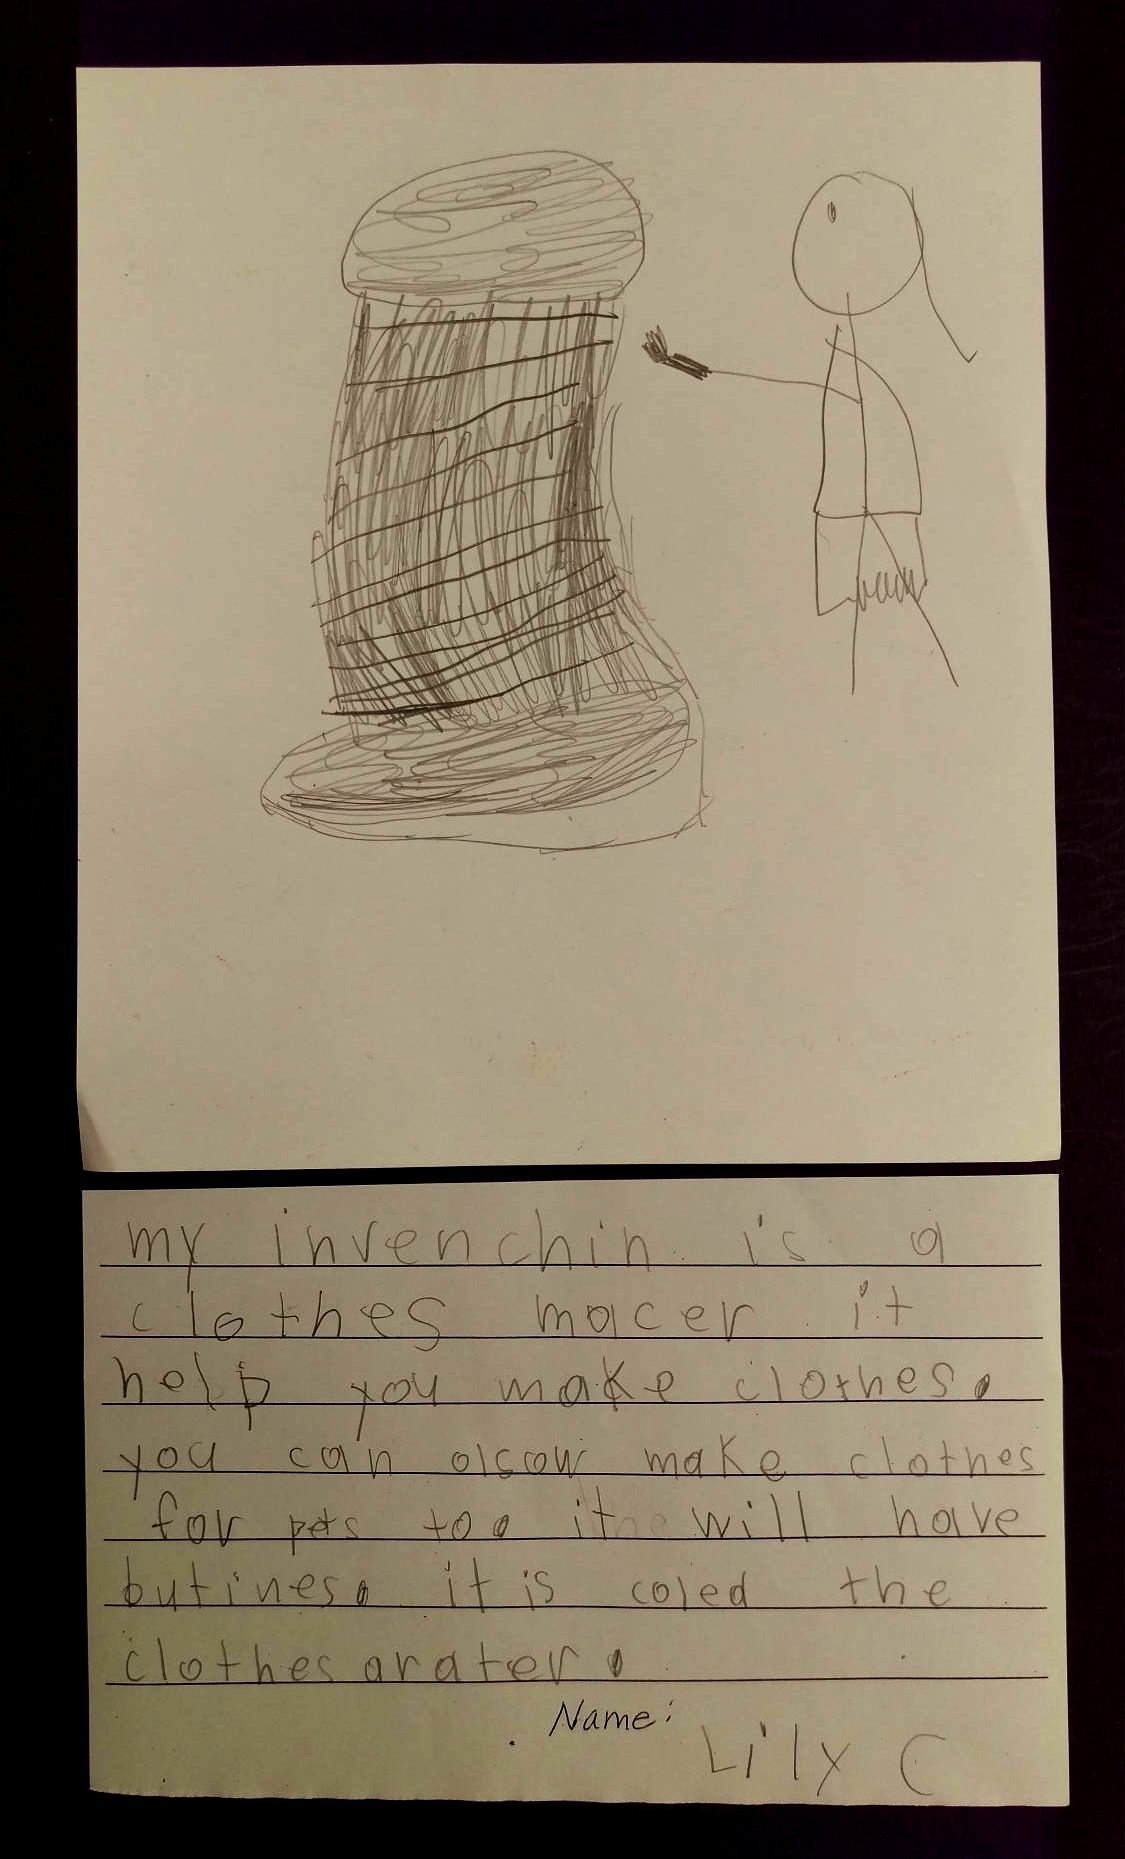 my invenchin is a
clothes macer it
help you make clothes.
you can olsow make clothes
for pets too it will have
butines. it is coled the
clothesarater.
Name:
Lily C